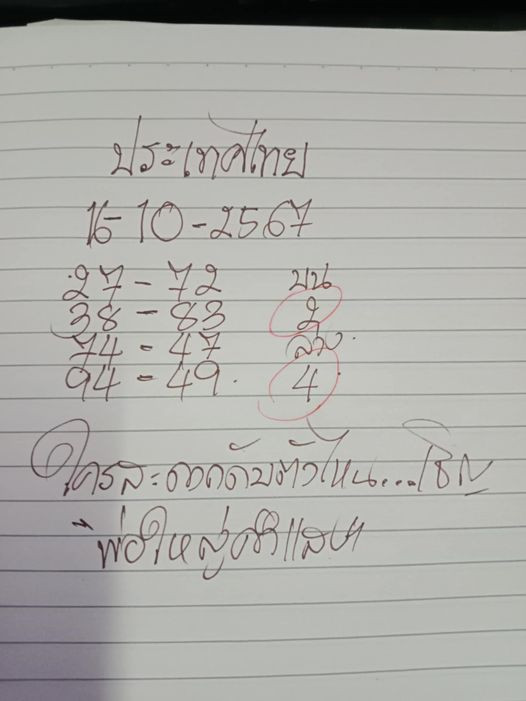 ประเทศไทย
16-10-2567
27-72 บน
38-83 2
74-47 ล่าง
94-49 4
ใครสะดวกกับตัวไหน...เชิญ
พ่อใหญ่